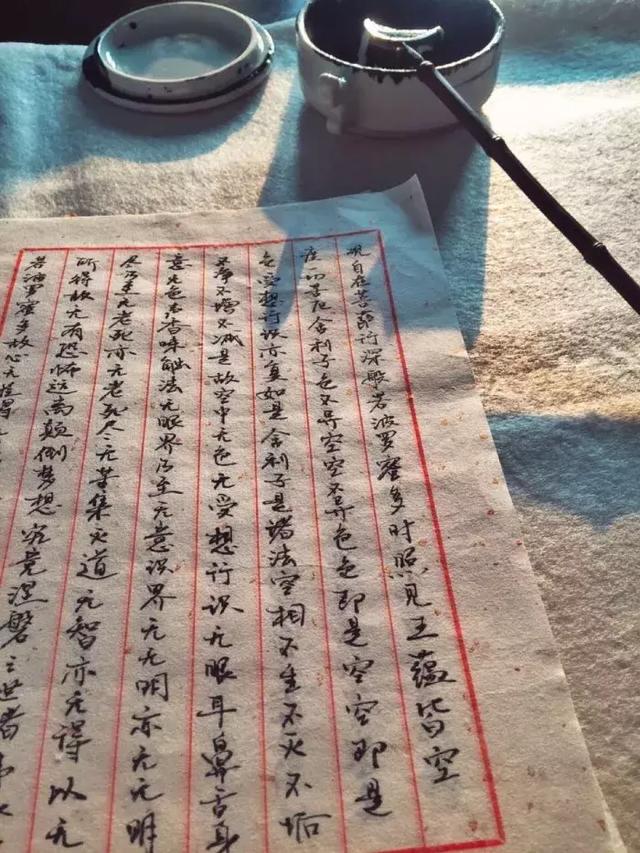 观自在菩萨行深般若波罗蜜多时照见五蕴皆空
度一切苦厄舍利子色不异空空不异色色即是空空即是
色受想行识亦复如是舍利子是诸法空相不生不灭不垢
不净不增不减是故空中无色无受想行识无眼耳鼻舌身
意无色声香味触法无眼界乃至无意识界无无明亦无无明
尽乃至无老死亦无老死尽无苦集灭道无智亦无得以无
所得故无有恐怖远离颠倒梦想究竟涅槃三世
若波罗蜜多故心无挂碍